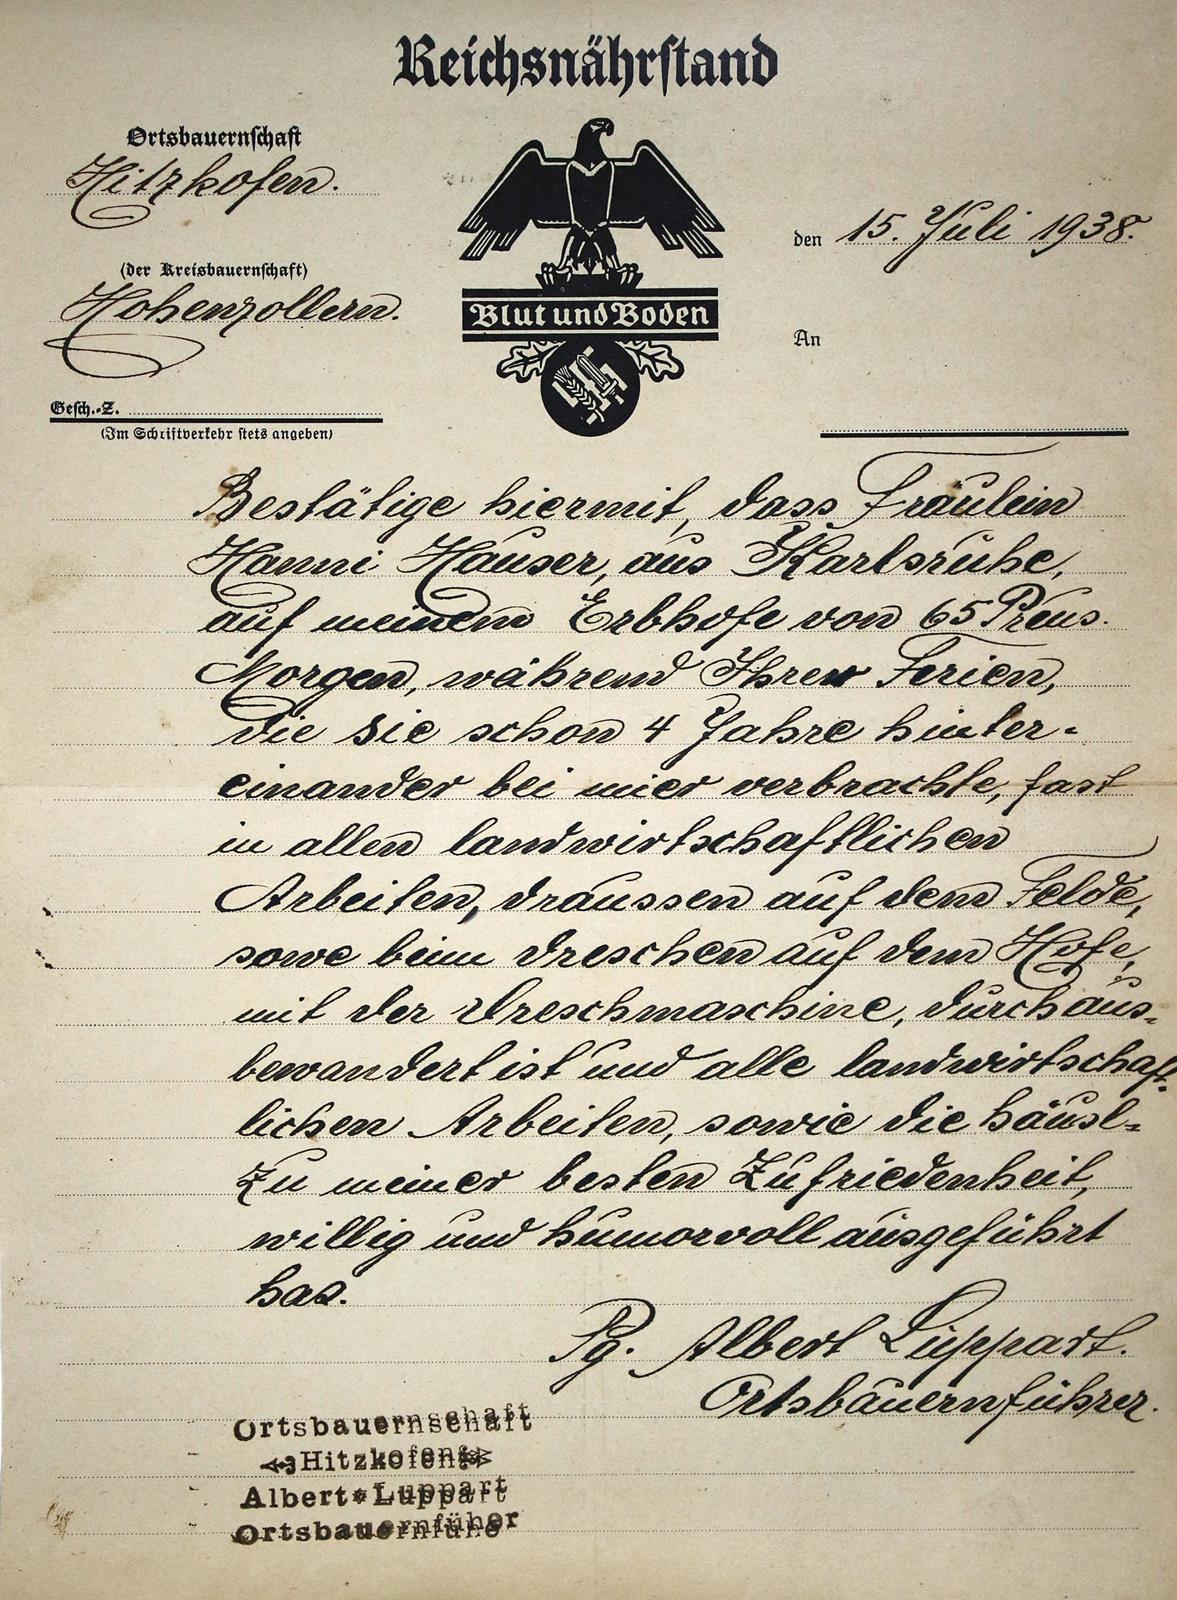 Reichsnährstand
Ortsbauernschaft
Hitzkofen.
(der Kreisbauernschaft)
Hohenzollern.
Gesch.-Z.
(Im Schriftverkehr stets angeben)
Blut und Boden
den 15. Juli 1938.
An
Bestätige hiermit, dass Fräulein
Hanni Hauser, aus Karlsruhe,
auf meinem Erbhofe von 65 Preus.
Morgen, während Ihrer Ferien,
die sie schon 4 Jahre hinter-
einander bei mier verbrachte, fast
in allen landwirtschaftlichen
Arbeiten, draussen auf dem Felde,
sowe beim dreschen auf dem Hofe,
mit der Dreschmaschine, durchaus-
bewandert ist und alle landwirtschaft-
lichen Arbeiten, sowie die häusl-
Zu meiner besten Zufriedenheit,
willig und humorvoll ausgeführt
hat.
Pg. Albert Luppart.
Ortsbauernführer.
Ortsbauernschaft
Hitzkofen
Albert Luppart
Ortsbauernfüher